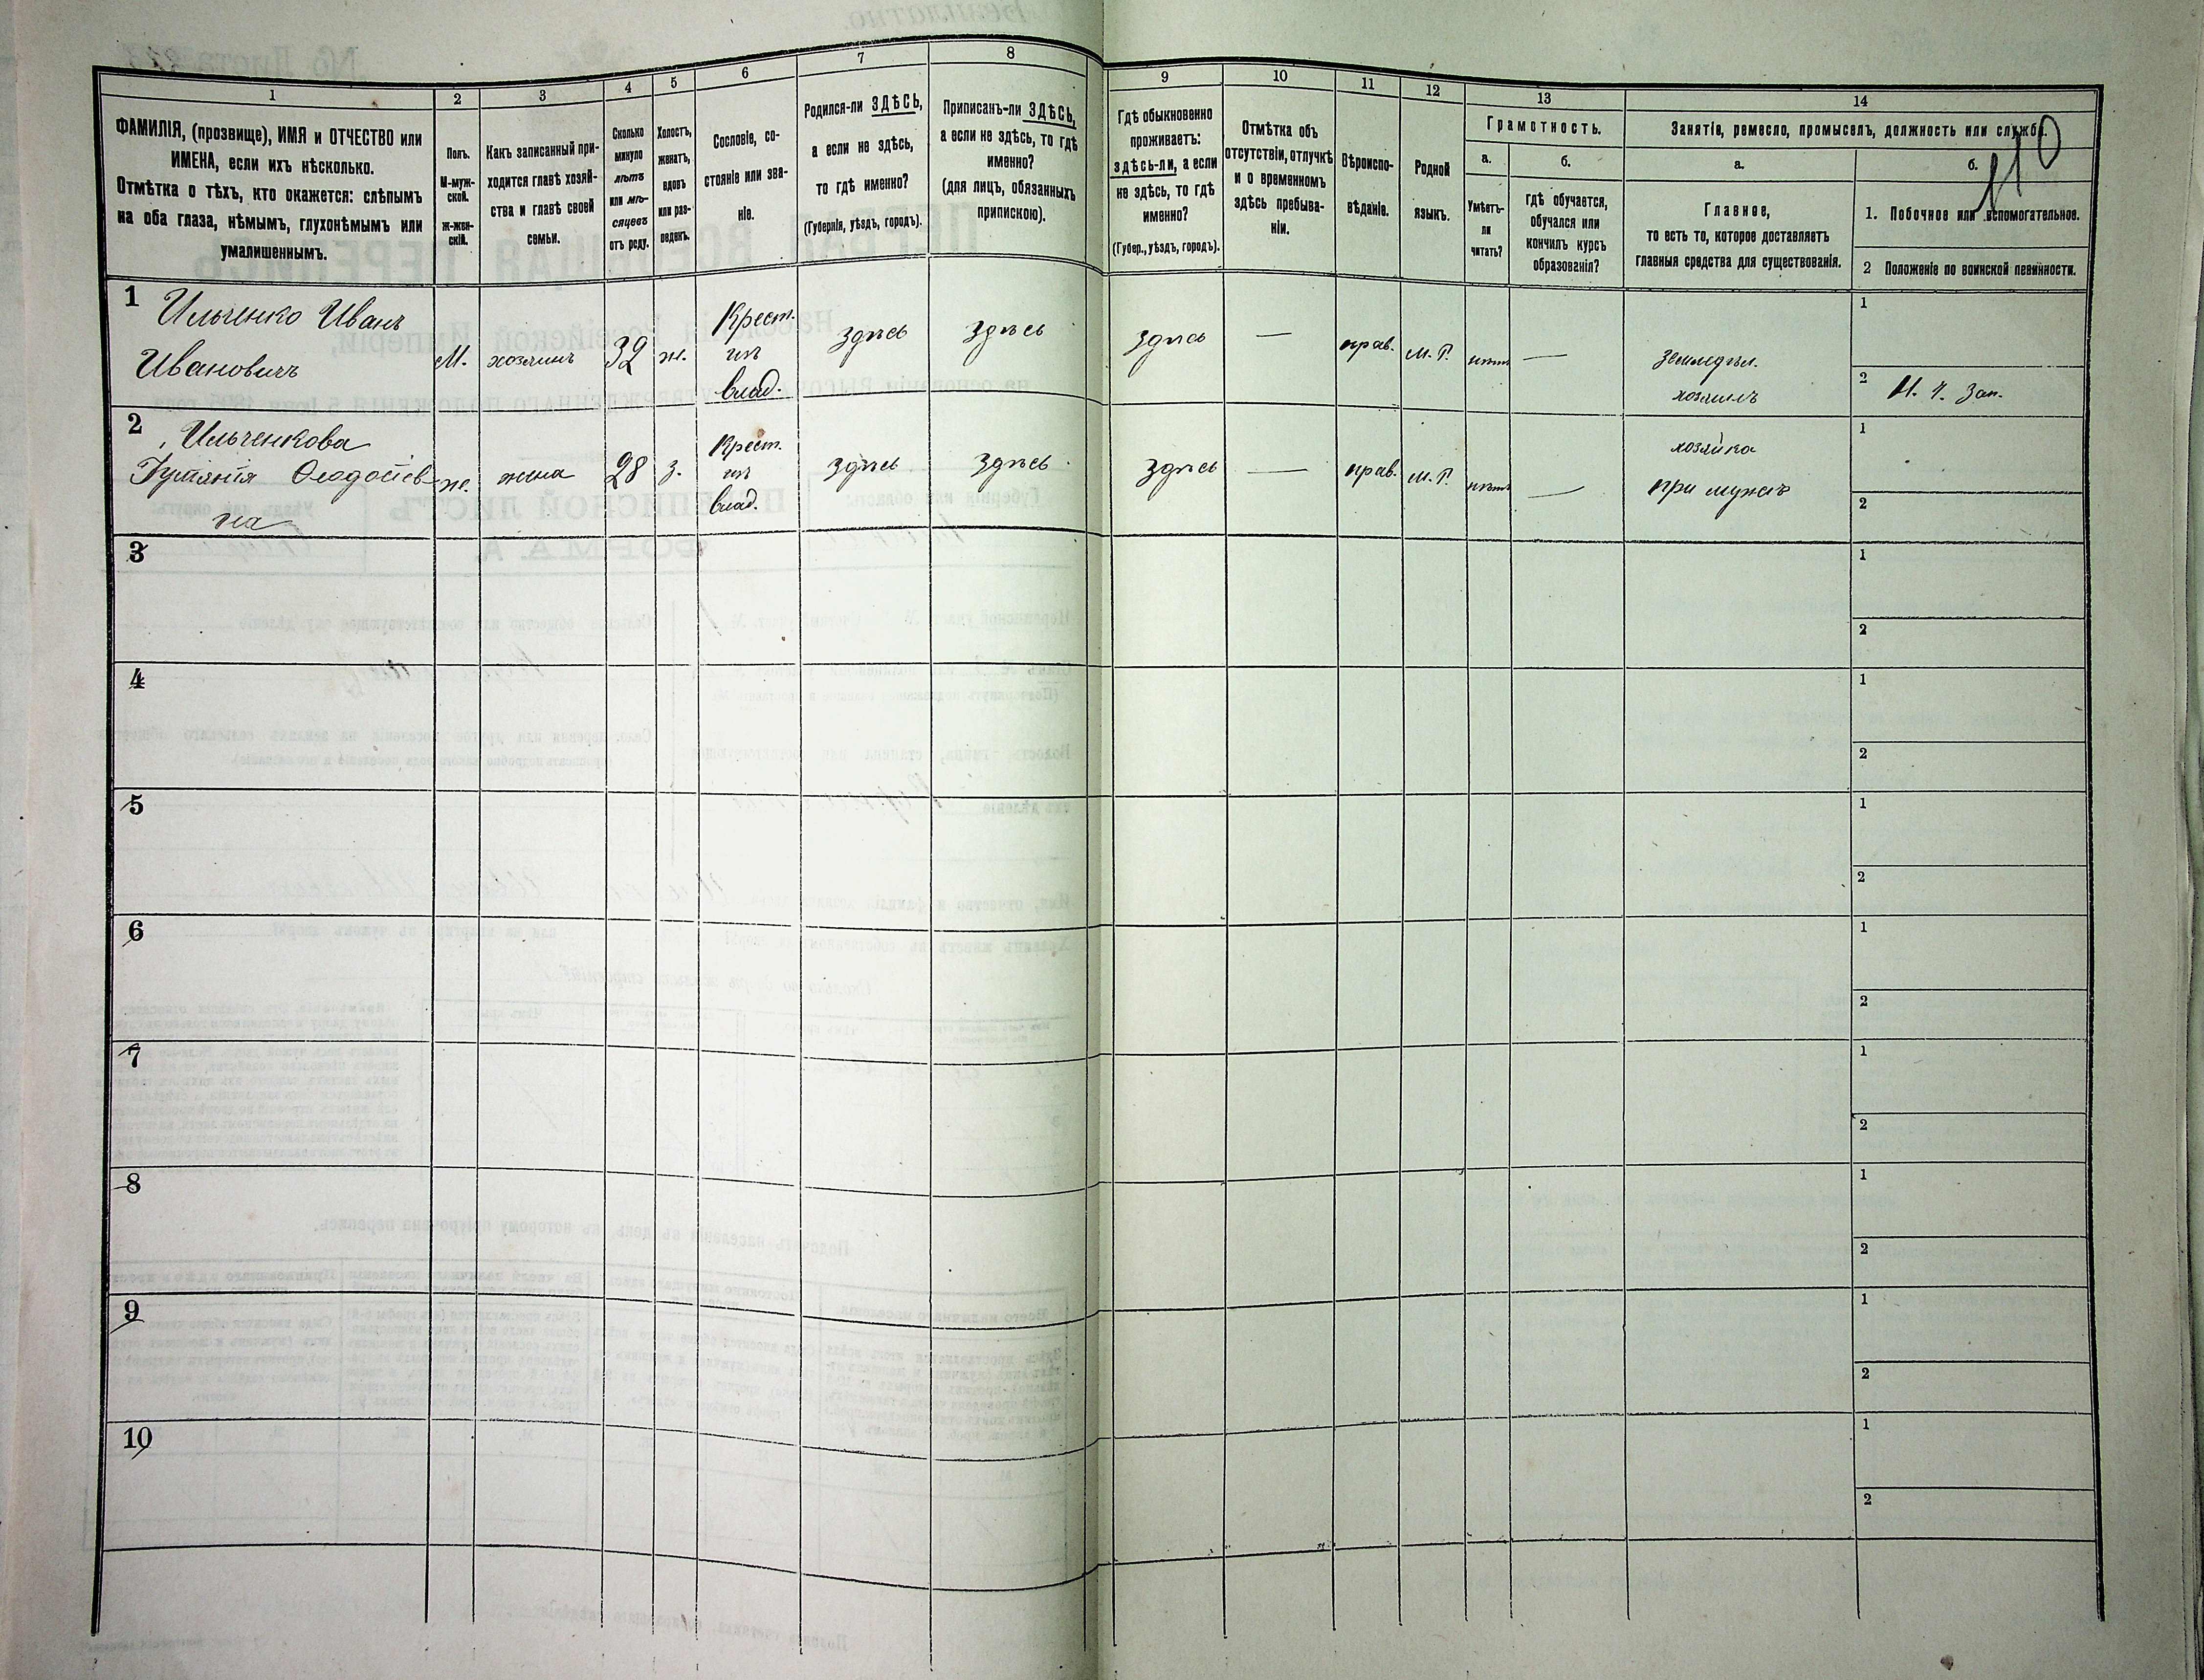 110
1
2
3
4
5
6
7
8
9
10
11
12
13
14
ФАМИЛІЯ, (прозвище), ИМЯ и ОТЧЕСТВО или
ИМЕНА, если ихъ нѣсколько.
Отмѣтка о тѣхъ, кто окажется: слѣпымъ
на оба глаза, нѣмымъ, глухонѣмымъ или
умалишеннымъ.
Полъ.
М-муж-
ской.
Ж-жен-
скій.
Какъ записанный при-
ходится главѣ хозяй-
ства и главѣ своей
семьи.
Сколько
минуло
лѣтъ
или мѣ-
сяцевъ
отъ роду.
Холостъ,
женатъ,
вдовъ
или раз-
веденъ.
Сословіе, со-
стояніе или зва-
ніе.
Родился-ли ЗДѢСЬ,
а если не здѣсь,
то гдѣ именно?
(Губернія, уѣздъ, городъ).
Приписанъ-ли ЗДѢСЬ,
а если не здѣсь, то гдѣ
именно?
(для лицъ, обязанныхъ
припискою).
Гдѣ обыкновенно
проживаетъ:
здѣсь-ли, а если
не здѣсь, то гдѣ
именно?
(Губер., уѣздъ, городъ).
Отмѣтка объ
отсутствіи, отлучкѣ
и о временномъ
здѣсь пребыва-
ніи.
Вѣроиспо-
вѣданіе.
Родной
языкъ.
Грамотность.
а.
Умѣетъ-
ли
читать?
б.
Гдѣ обучается,
обучался или
кончилъ курсъ
образованія?
Занятіе, ремесло, промыселъ, должность или служба.
а.
Главное,
то есть то, которое доставляетъ
главныя средства для существованія.
б.
1. Побочное или вспомогательное.
2 Положеніе по воинской повинности.
1
Ильченко Иванъ
Ивановичъ
М.
хозяинъ
32
ж.
Крест.
изъ
влад.
здѣсь
здѣсь
здѣсь
—
прав.
М. Р.
нѣтъ
—
земледѣл.
хозяинъ
1
2
2
Ильченкова
Ѳеодосіев-
на
ж.
жена
28
з.
Крест.
изъ
влад.
здѣсь
здѣсь
здѣсь
—
прав.
М. Р.
нѣтъ
—
хозяйка
при мужѣ
1
2
3
1
2
4
1
2
5
1
2
6
1
2
7
1
2
8
1
2
9
1
2
10
1
2